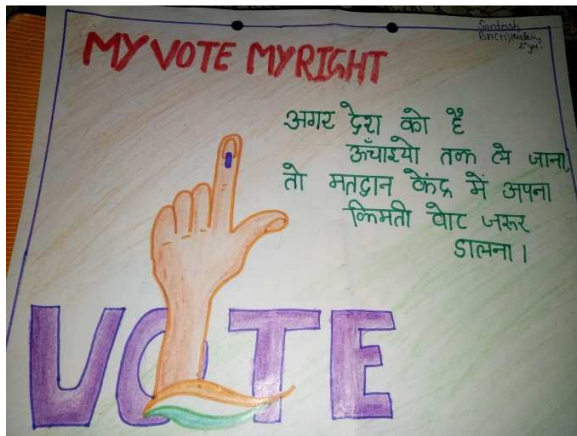 Santosh
MY VOTE MY RIGHT
अगर देश को है
ऊँचाइयो तक ले जाना,
तो मतदान केंद्र में अपना
किमती वोट जरूर
डालना।
VOTE